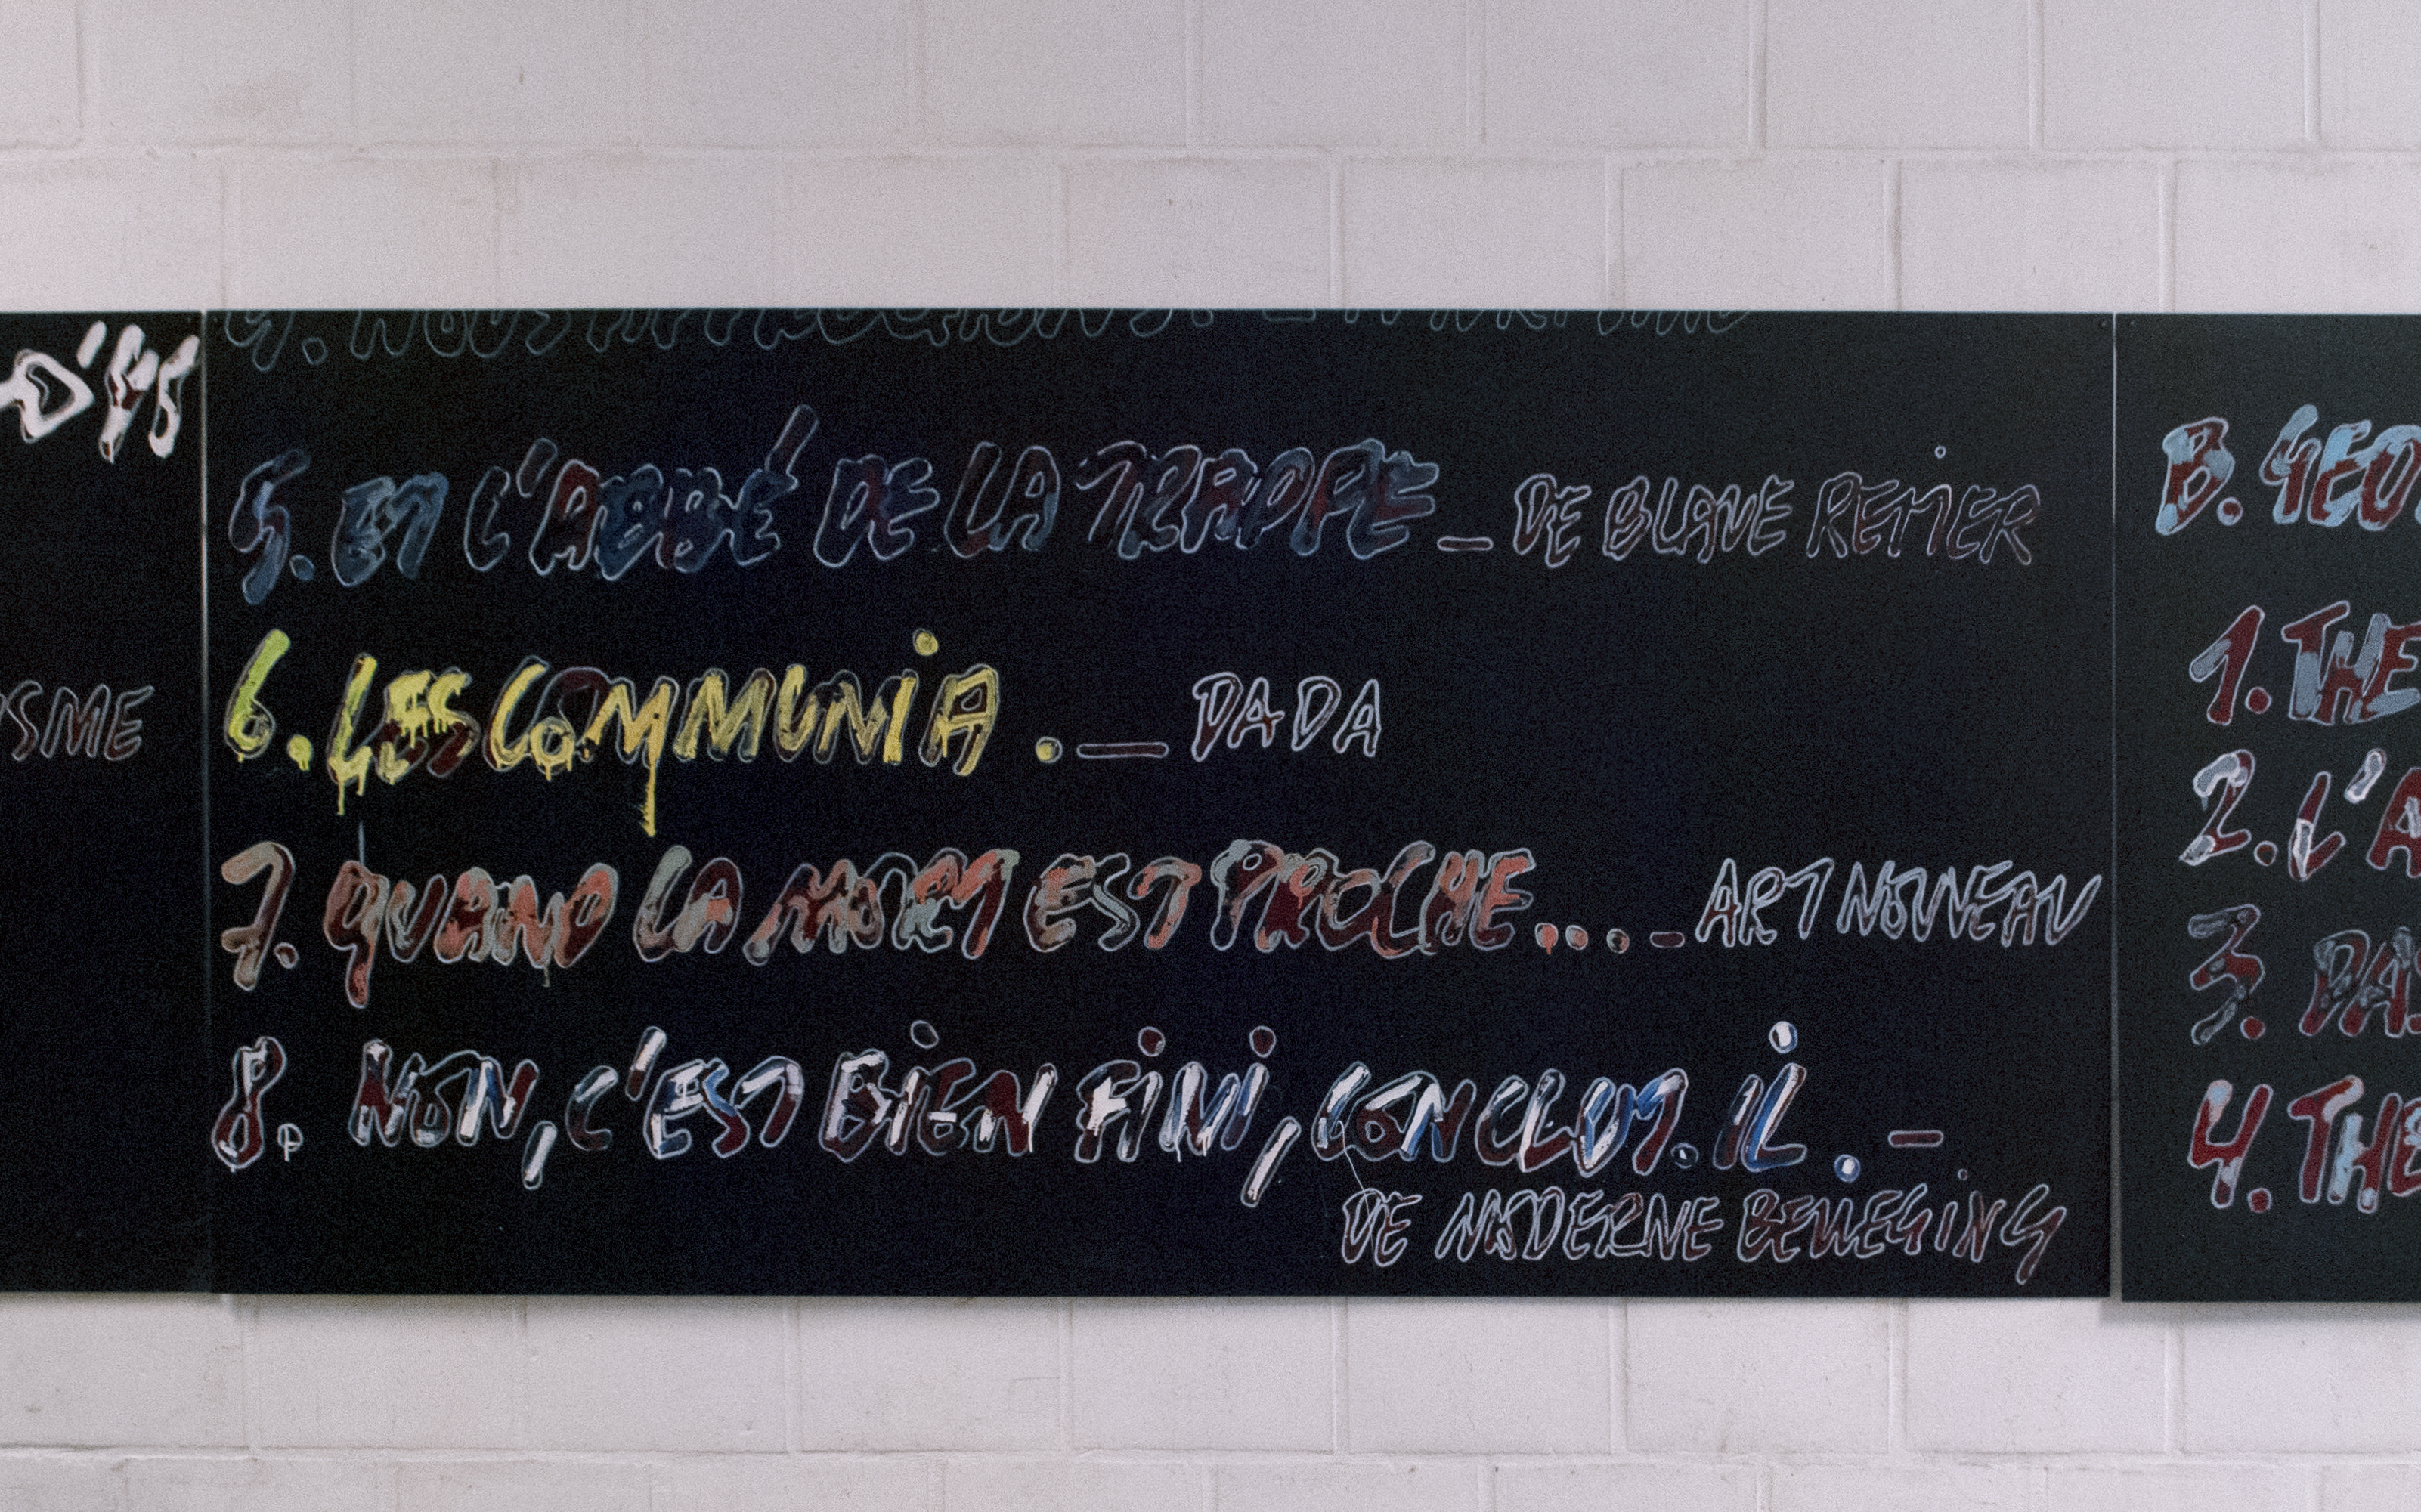 D'45
ISME
5. ET L'ABBÉ DE LA TRAPPE _ DE BLAUE REITER
6. LES COMMUNIA. _ DADA
7. QUAND LA MORT EST PROCHE... _ ART NOUVEAU
8. NON, C'EST BIEN FINI, CONCLUT.IL. _
DE MODERNE BEWEGING
B. GEO
1. THE
2. L'A
3. DAS
4. THE